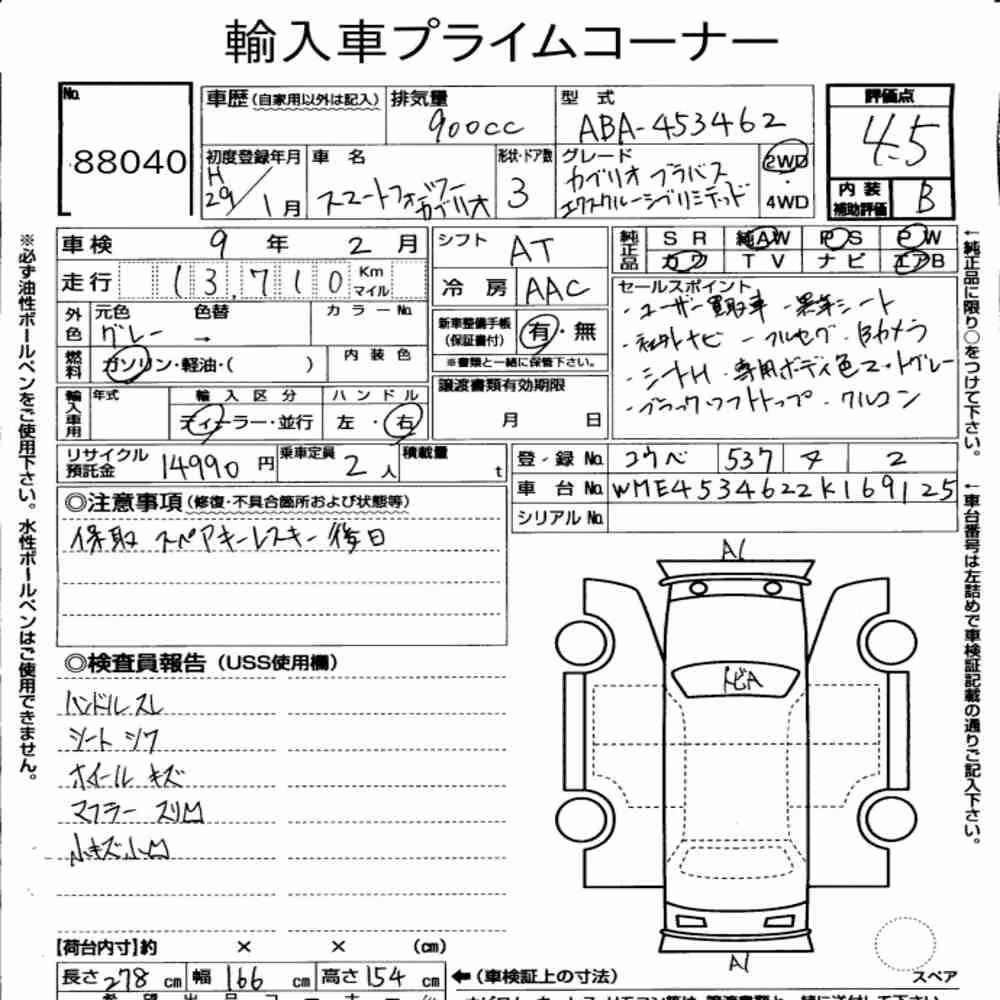 輸入車プライムコーナー
No. 88040
車歴(自家用以外は記入)
排気量 900cc
型式 ABA-453462
評価点 4.5
内装補助評価 B
初度登録年月 H29/1月
車名 スマートフォーツーカブリオ
形状・ドア数 3
グレード カブリオ ブラバス エクスクルーシブリミテッド
2WD・4WD
※必ず油性ボールペンをご使用下さい。水性ボールペンはご使用できません。
車検 9年2月
シフト AT
純正品 SR 純AW PS PW
カワ TV ナビ エアB
走行 13,710 Km マイル
冷房 AAC
セールスポイント
・ユーザー買取車 ・黒革シート
・社外ナビ ・フルセグ ・Bカメラ
・シートH ・専用ボディ色マットグレー
・ブラックソフトトップ ・クルコン
外色 元色 グレー 色替 → カラーNo.
新車整備手帳(保証書付) 有・無
※書類と一緒に保管下さい。
燃料 ガソリン・軽油・( ) 内装色
譲渡書類有効期限 月 日
輸入車用 年式 輸入区分 ディーラー・並行 ハンドル 左・右
リサイクル預託金 14990円
乗車定員 2人
積載量 t
登録No. コウベ 537 タ 2
車台No. WME4534622K169125
シリアルNo.
←純正品に限り○をつけて下さい。
←車台番号は左詰めで車検証記載の通りご記入下さい。
◎注意事項(修復・不具合箇所および状態等)
保取 スペアキーレスキー後日
◎検査員報告(USS使用欄)
ハンドルスレ
シートシワ
ホイールキズ
マフラースリ凹
小キズ小凹
A1
トビA
A1
【荷台内寸】約 × × (cm)
長さ278cm 幅166cm 高さ154cm ←(車検証上の寸法)
スペア